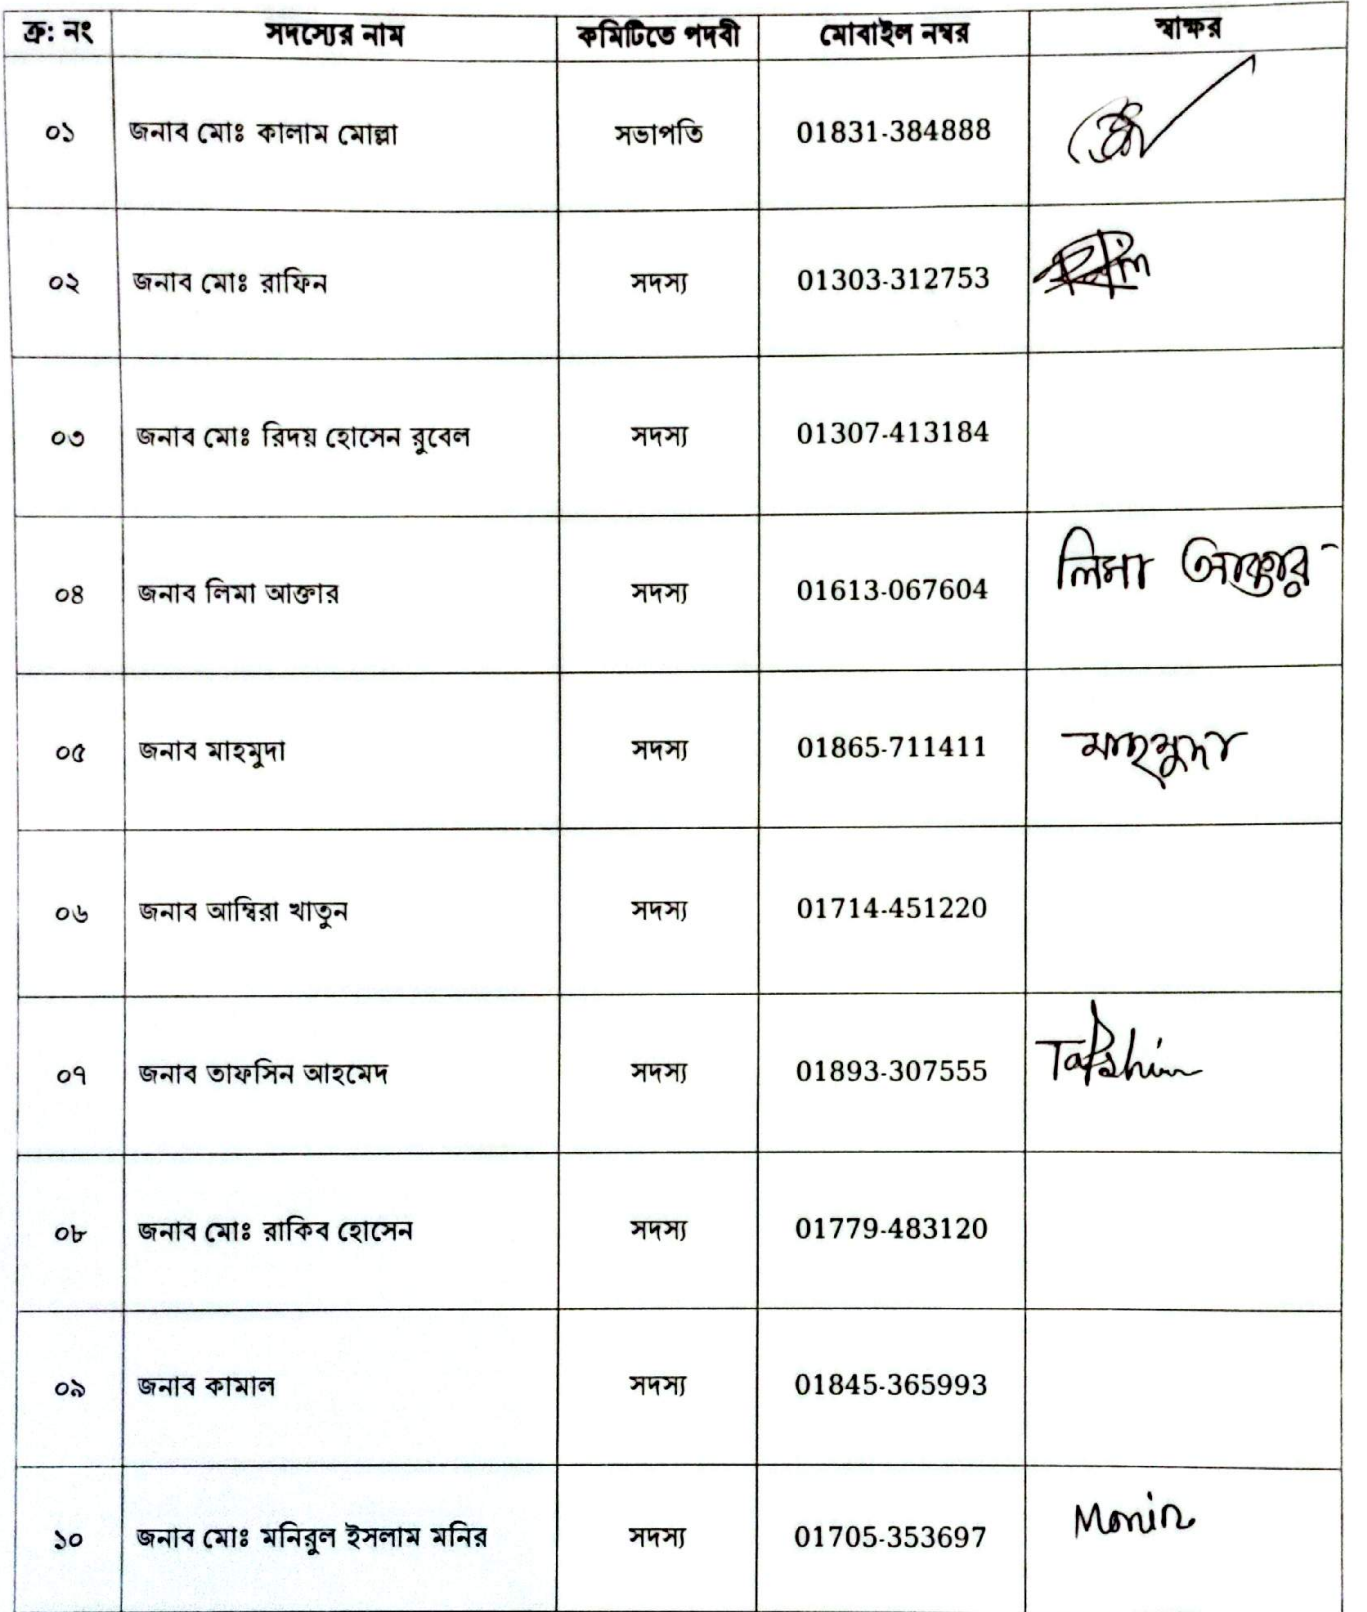 ক্র: নং সদস্যের নাম কমিটিতে পদবী মোবাইল নম্বর স্বাক্ষর
০১ জনাব মোঃ কালাম মোল্লা সভাপতি 01831-384888
০২ জনাব মোঃ রাফিন সদস্য 01303-312753
০৩ জনাব মোঃ রিদয় হোসেন রুবেল সদস্য 01307-413184
০৪ জনাব লিমা আক্তার সদস্য 01613-067604 লিমা আক্তার
০৫ জনাব মাহমুদা সদস্য 01865-711411 মাহমুদা
০৬ জনাব আম্বিরা খাতুন সদস্য 01714-451220
০৭ জনাব তাফসিন আহমেদ সদস্য 01893-307555 Tafshin
০৮ জনাব মোঃ রাকিব হোসেন সদস্য 01779-483120
০৯ জনাব কামাল সদস্য 01845-365993
১০ জনাব মোঃ মনিরুল ইসলাম মনির সদস্য 01705-353697 Monir